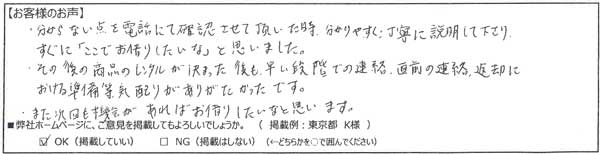 【お客様のお声】
・分からない点を電話にて確認させて頂いた時、分かりやすく、丁寧に説明して下さり、
すぐに「ここでお借りしたいな」と思いました。
・その後の商品のレンタルが決まった後も、早い段階での連絡、直前の連絡、返却に
おける準備等気配りがありがたかったです。
・また次回も機会があればお借りしたいなと思います。
■弊社ホームページに、ご意見を掲載してもよろしいでしょうか。（ 掲載例：東京都 K様 ）
☑ OK（掲載していい） □ NG（掲載はしない）（←どちらかを○で囲んでください）